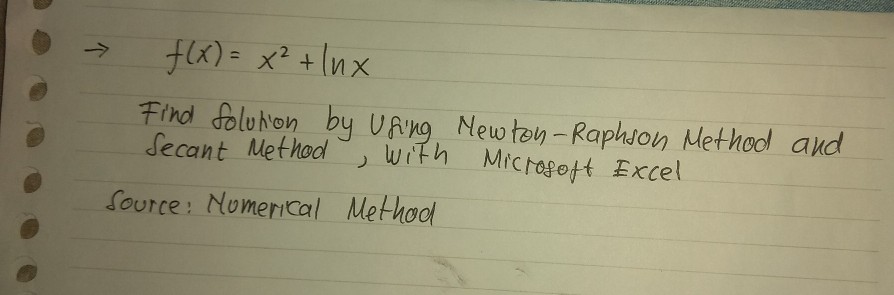 → f(x) = x² + ln x
Find Solution by Using Newton-Raphson Method and
Secant Method, with Microsoft Excel
Source: Numerical Method